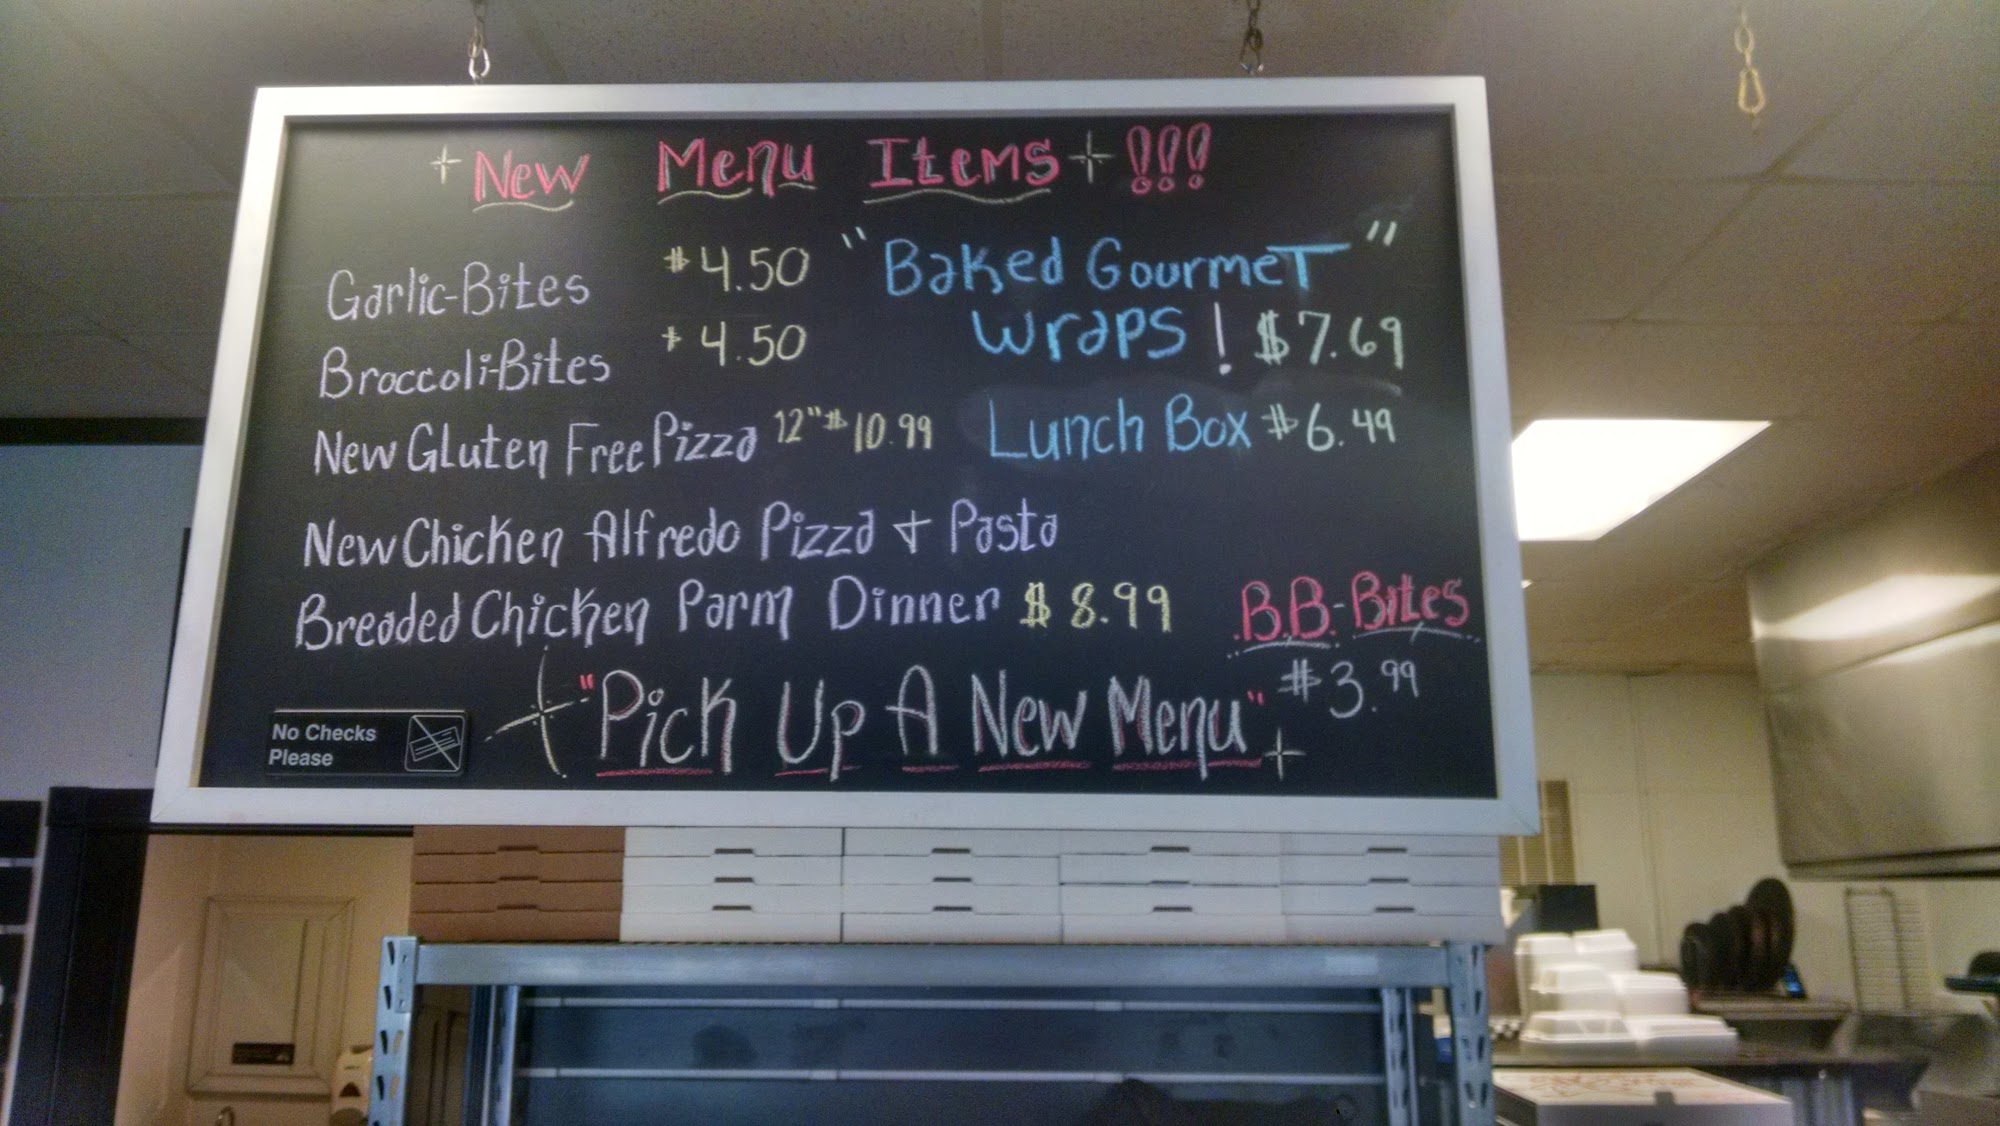 New Menu Items !!!
Garlic-Bites $4.50
Broccoli-Bites $4.50
New Gluten Free Pizza 12" $10.99
New Chicken Alfredo Pizza + Pasta
Breaded Chicken Parm Dinner $8.99
"Baked Gourmet"
Wraps! $7.69
Lunch Box $6.49
B.B.-Bites
$3.99
"Pick Up A New Menu"
No Checks
Please